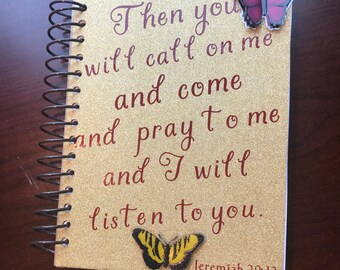 Then you
will call on me
and come
and pray to me
and I will
listen to you.
Jeremiah 29:12